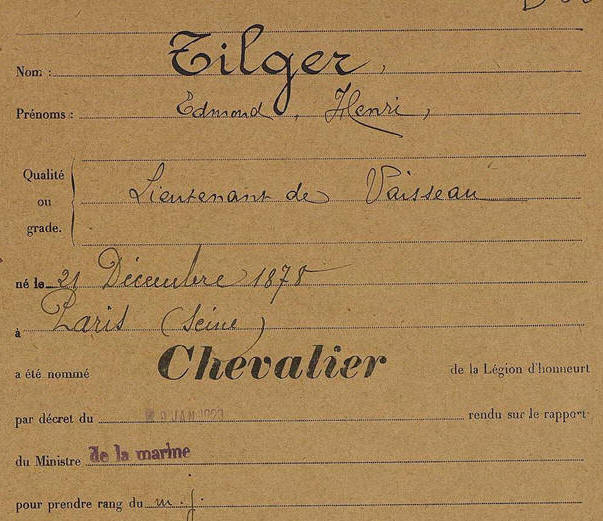 Nom : Tilger,
Prénoms : Edmond, Henri,
Qualité
ou
grade. Lieutenant de Vaisseau
né le 21 Décembre 1878
à Paris (Seine)
a été nommé Chevalier de la Légion d'honneur
par décret du rendu sur le rapport
du Ministre de la marine
pour prendre rang du m. j.